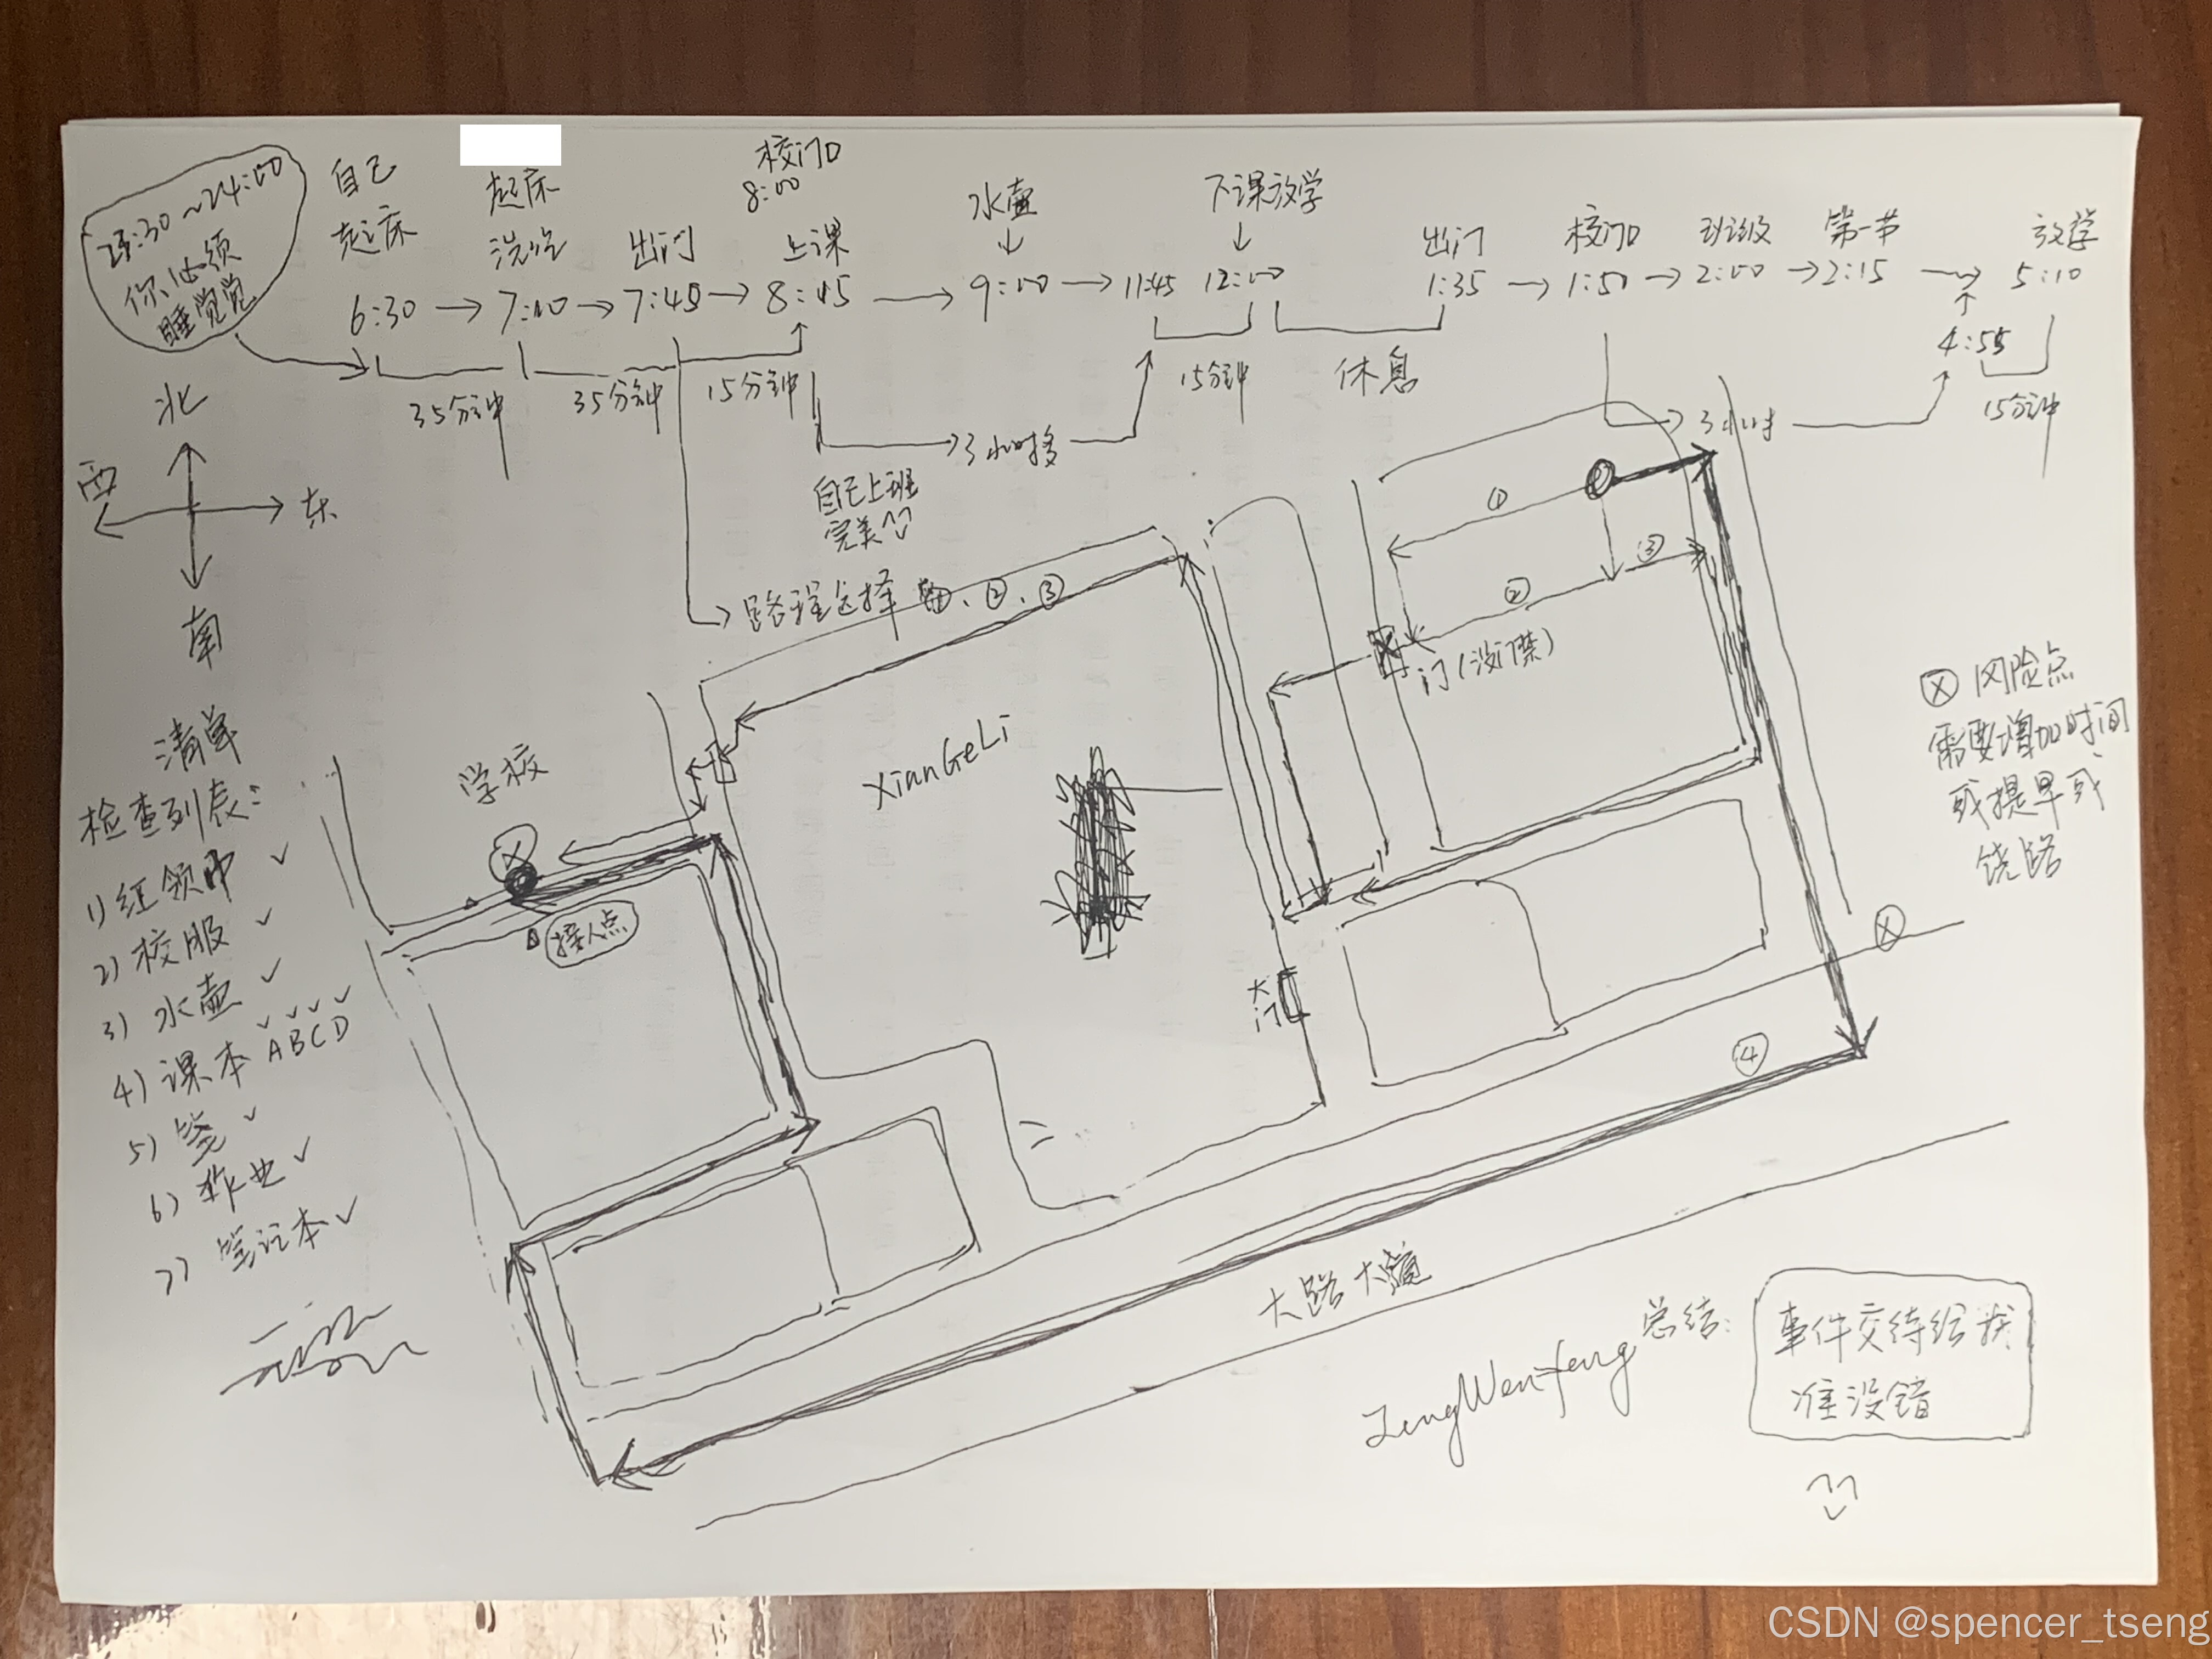 23:30~24:00
你必须
睡觉觉
自己
起床
6:30
起床
洗
7:10
出门
7:45
校门口
8:00
上课
8:45
水壶
9:00
11:45
下课放学
12:00
出门
1:35
校门口
1:50
班级
2:00
第一节
2:15
放学
5:10
4:55
35分钟
35分钟
15分钟
3小时多
15分钟
休息
3小时
15分钟
自己上班
完美
路程选择 ①、②、③
北
西
东
南
清单
检查列表:
1) 红领巾 ✓
2) 校服 ✓
3) 水壶 ✓
4) 课本 ABCD ✓✓✓✓
5) 笔 ✓
6) 作业 ✓
7) 笔记本 ✓
学校
接人点
XianGeLi
大门
①
②
③
门(没门禁)
④
ⓧ 风险点
需要增加时间
或提早或
绕路
大路大道
ZengWenfeng 总结:
事件交待给我
准没错
CSDN @spencer_tseng